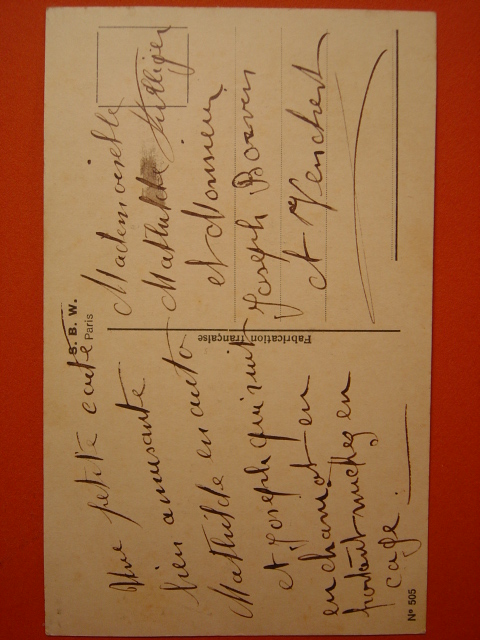 Une petite carte
bien amusante
Mathilde en auto
et Joseph qui suit
en chariot en
portant en
cage.
Mademoiselle
Mathilde
et Monsieur
Joseph
et
S. B. W.
Paris
Fabrication française
N° 505